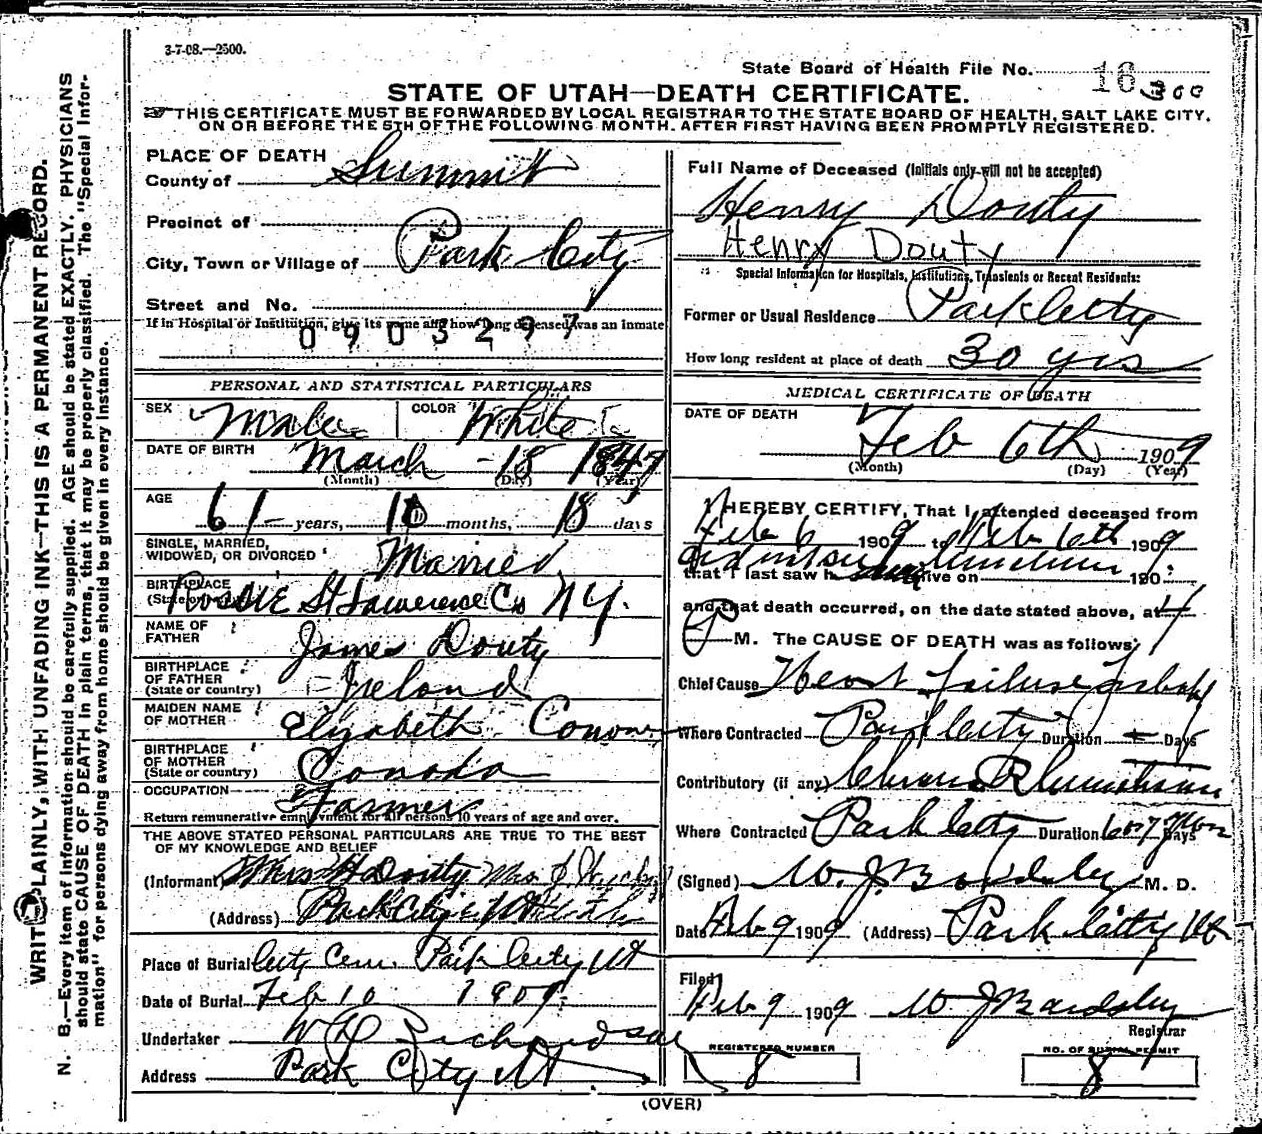 3-7-08.—2500.
State Board of Health File No. 16 300
STATE OF UTAH—DEATH CERTIFICATE.
THIS CERTIFICATE MUST BE FORWARDED BY LOCAL REGISTRAR TO THE STATE BOARD OF HEALTH, SALT LAKE CITY,
ON OR BEFORE THE 5TH OF THE FOLLOWING MONTH. AFTER FIRST HAVING BEEN PROMPTLY REGISTERED.
WRITE PLAINLY, WITH UNFADING INK—THIS IS A PERMANENT RECORD.
N. B.—Every item of information should be carefully supplied. AGE should be stated EXACTLY. PHYSICIANS
should state CAUSE OF DEATH in plain terms, that it may be properly classified. The "Special Infor-
mation" for persons dying away from home should be given in every instance.
PLACE OF DEATH
County of Summit
Precinct of
City, Town or Village of Park City
Street and No.
If in Hospital or Institution, give its name and how long deceased was an inmate
0903297
PERSONAL AND STATISTICAL PARTICULARS
SEX Male COLOR White
DATE OF BIRTH March 18 1847
(Month) (Day) (Year)
AGE 61 years, 10 months, 18 days
SINGLE, MARRIED,
WIDOWED, OR DIVORCED Married
BIRTHPLACE
(State or country) Rossie St Lawerence Co NY.
NAME OF
FATHER James Douty
BIRTHPLACE
OF FATHER
(State or country) Ireland
MAIDEN NAME
OF MOTHER Elizabeth
BIRTHPLACE
OF MOTHER
(State or country) Canada
OCCUPATION Farmer
Return remunerative employment for all persons 10 years of age and over.
THE ABOVE STATED PERSONAL PARTICULARS ARE TRUE TO THE BEST
OF MY KNOWLEDGE AND BELIEF
(Informant) Mrs H Doutty
(Address) Park City
Place of Burial City Cem. Park City Ut
Date of Burial Feb 10 1909.
Undertaker Richardson
Address Park City Ut
Full Name of Deceased (Initials only will not be accepted)
Henry Douty
Henry Douty
Special Information for Hospitals, Institutions, Transients or Recent Residents:
Former or Usual Residence Park City
How long resident at place of death 30 yrs
MEDICAL CERTIFICATE OF DEATH
DATE OF DEATH
Feb 6th 1909
(Month) (Day) (Year)
I HEREBY CERTIFY, That I attended deceased from
Feb 6 1909 to Feb 6th 1909.
that I last saw h alive on 190
and that death occurred, on the date stated above, at 4
P M. The CAUSE OF DEATH was as follows:
Chief Cause Heart failure
Where Contracted Park City Duration Days
Contributory (if any) Chronic Rheumatism
Where Contracted Park City Duration Days
(Signed) W. J. Bardsley M. D.
Date Feb 9 1909 (Address) Park City Ut
Filed
Feb 9 1909 W J Bardsley
Registrar
REGISTERED NUMBER
8
NO. OF BURIAL PERMIT
8
(OVER)